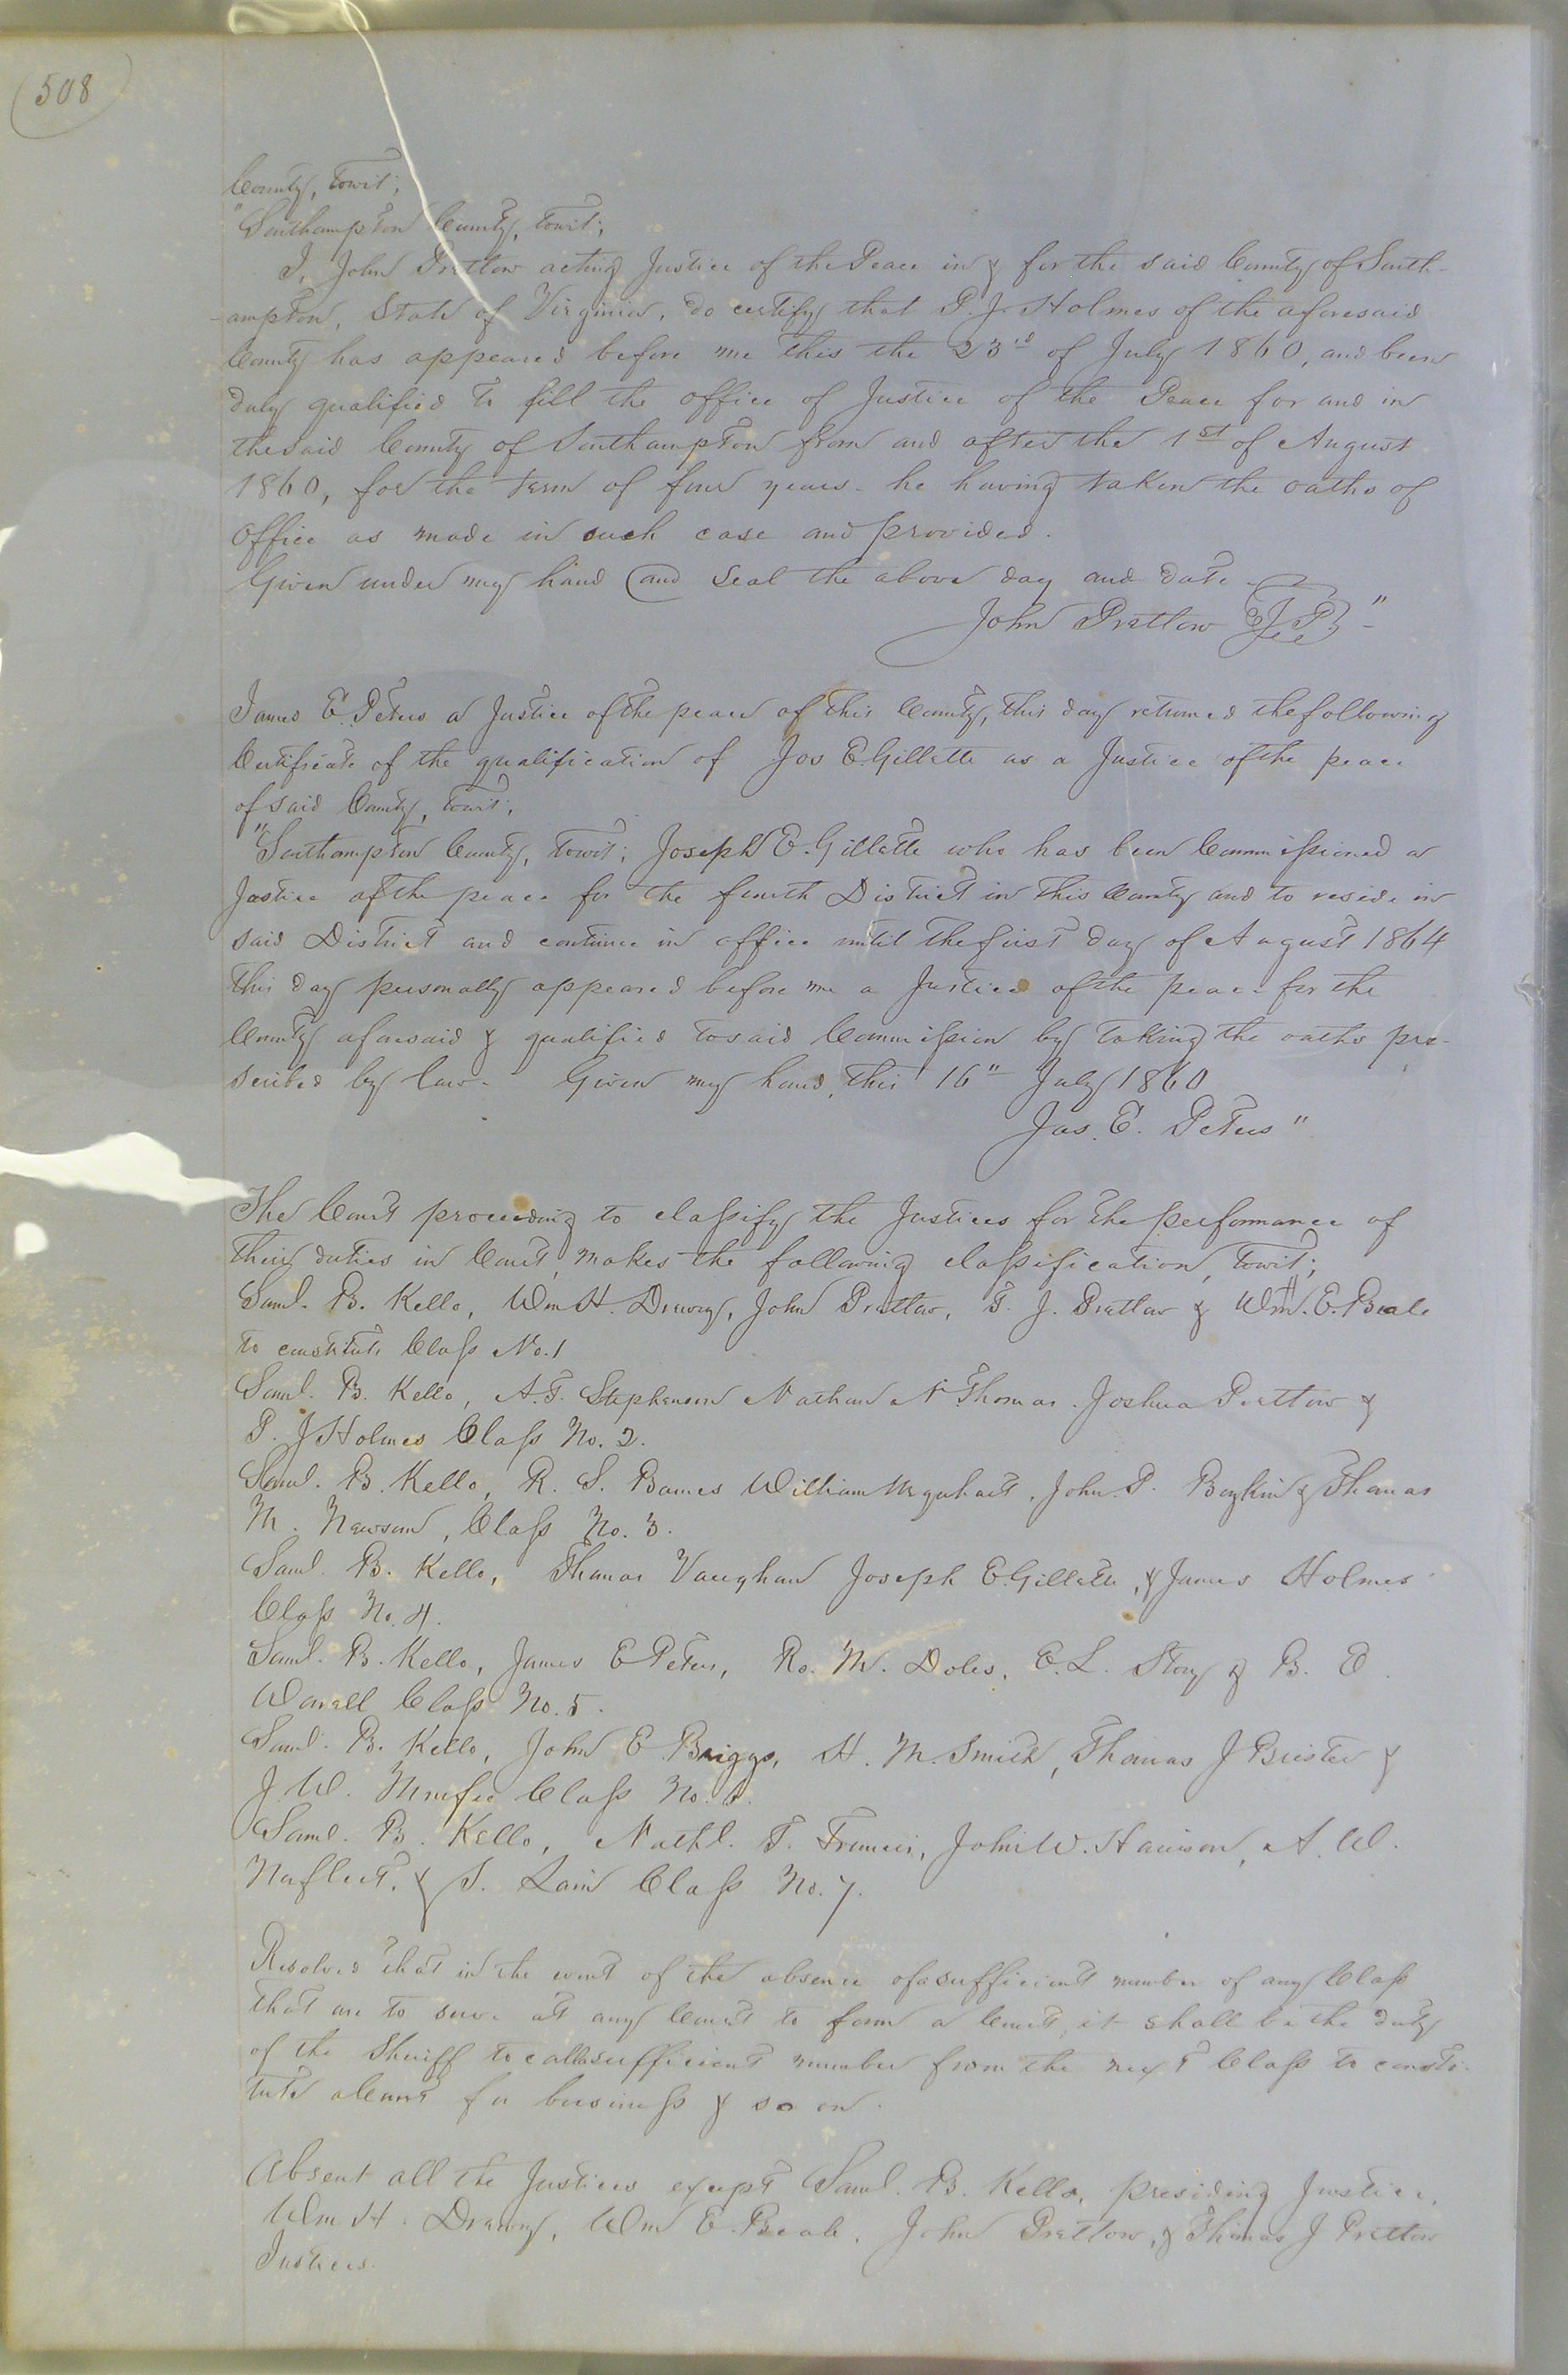 508
County, towit;
"Southampton County, towit;
I, John Pretlow acting Justice of the Peace in & for the said County of South-
-ampton, State of Virginia, do certify that P. J. Holmes of the aforesaid
County has appeared before me this the 23rd of July 1860, and been
duly qualified to fill the office of Justice of the Peace for and in
the said County of Southampton from and after the 1st of August
1860, for the term of four years. he having taken the oaths of
office as made in such case and provided.
Given under my hand and seal the above day and date.
John Pretlow J.P."
James E. Peters a Justice of the peace of this County, this day returned the following
Certificate of the qualification of Jos E. Gillette as a Justice of the peace
of said County, towit;
"Southampton County, towit; Joseph E. Gillette who has been Commissioned a
Justice of the peace for the fourth District in this County and to reside in
said District and continue in office until the first day of August 1864
this day personally appeared before me a Justice of the peace for the
County aforesaid & qualified to said Commission by taking the oaths pre-
scribed by law. Given my hand, this 16" July 1860
Jas. E. Peters"
The Court proceeding to classify the Justices for the performance of
their duties in Court, makes the following classification, towit;
Saml. B. Kello, Wm H. Drewry, John Pretlow, T. J. Pretlow & Wm. E. Beale
to constitute Class No. 1
Saml. B. Kello, A. T. Stephenson Nathan N Thomas. Joshua Pretlow &
P. J Holmes Class No. 2.
Saml. B. Kello, R. S. Barnes William Urquhart, John. P. Boykin & Thomas
M. Newsum, Class No. 3.
Saml. B. Kello, Thomas Vaughan Joseph E. Gillette, & James Holmes
Class No. 4.
Saml. B. Kello, James E Peters, Ro. M. Doles, E. L. Story & B. E.
Worrell Class No. 5.
Saml. B. Kello, John E Briggs, H. M. Smith, Thomas J Brister &
J. W. Class No. 6.
Saml. B. Kello, Nathl. T. Francis, John W. Harrison, A. W.
Norfleet, & S. Lain Class No. 7.
Resolved that in the event of the absence of a sufficient number of any Class
that are to serve at any Court to form a Court, it shall be the duty
of the Sheriff to call a sufficient number from the next Class to consti-
tute a Court for business & so on.
Absent all the Justices except Saml. B. Kello, presiding Justice,
Wm H. Drewry, Wm E. Beale, John Pretlow, & Thomas J Pretlow
Justices.